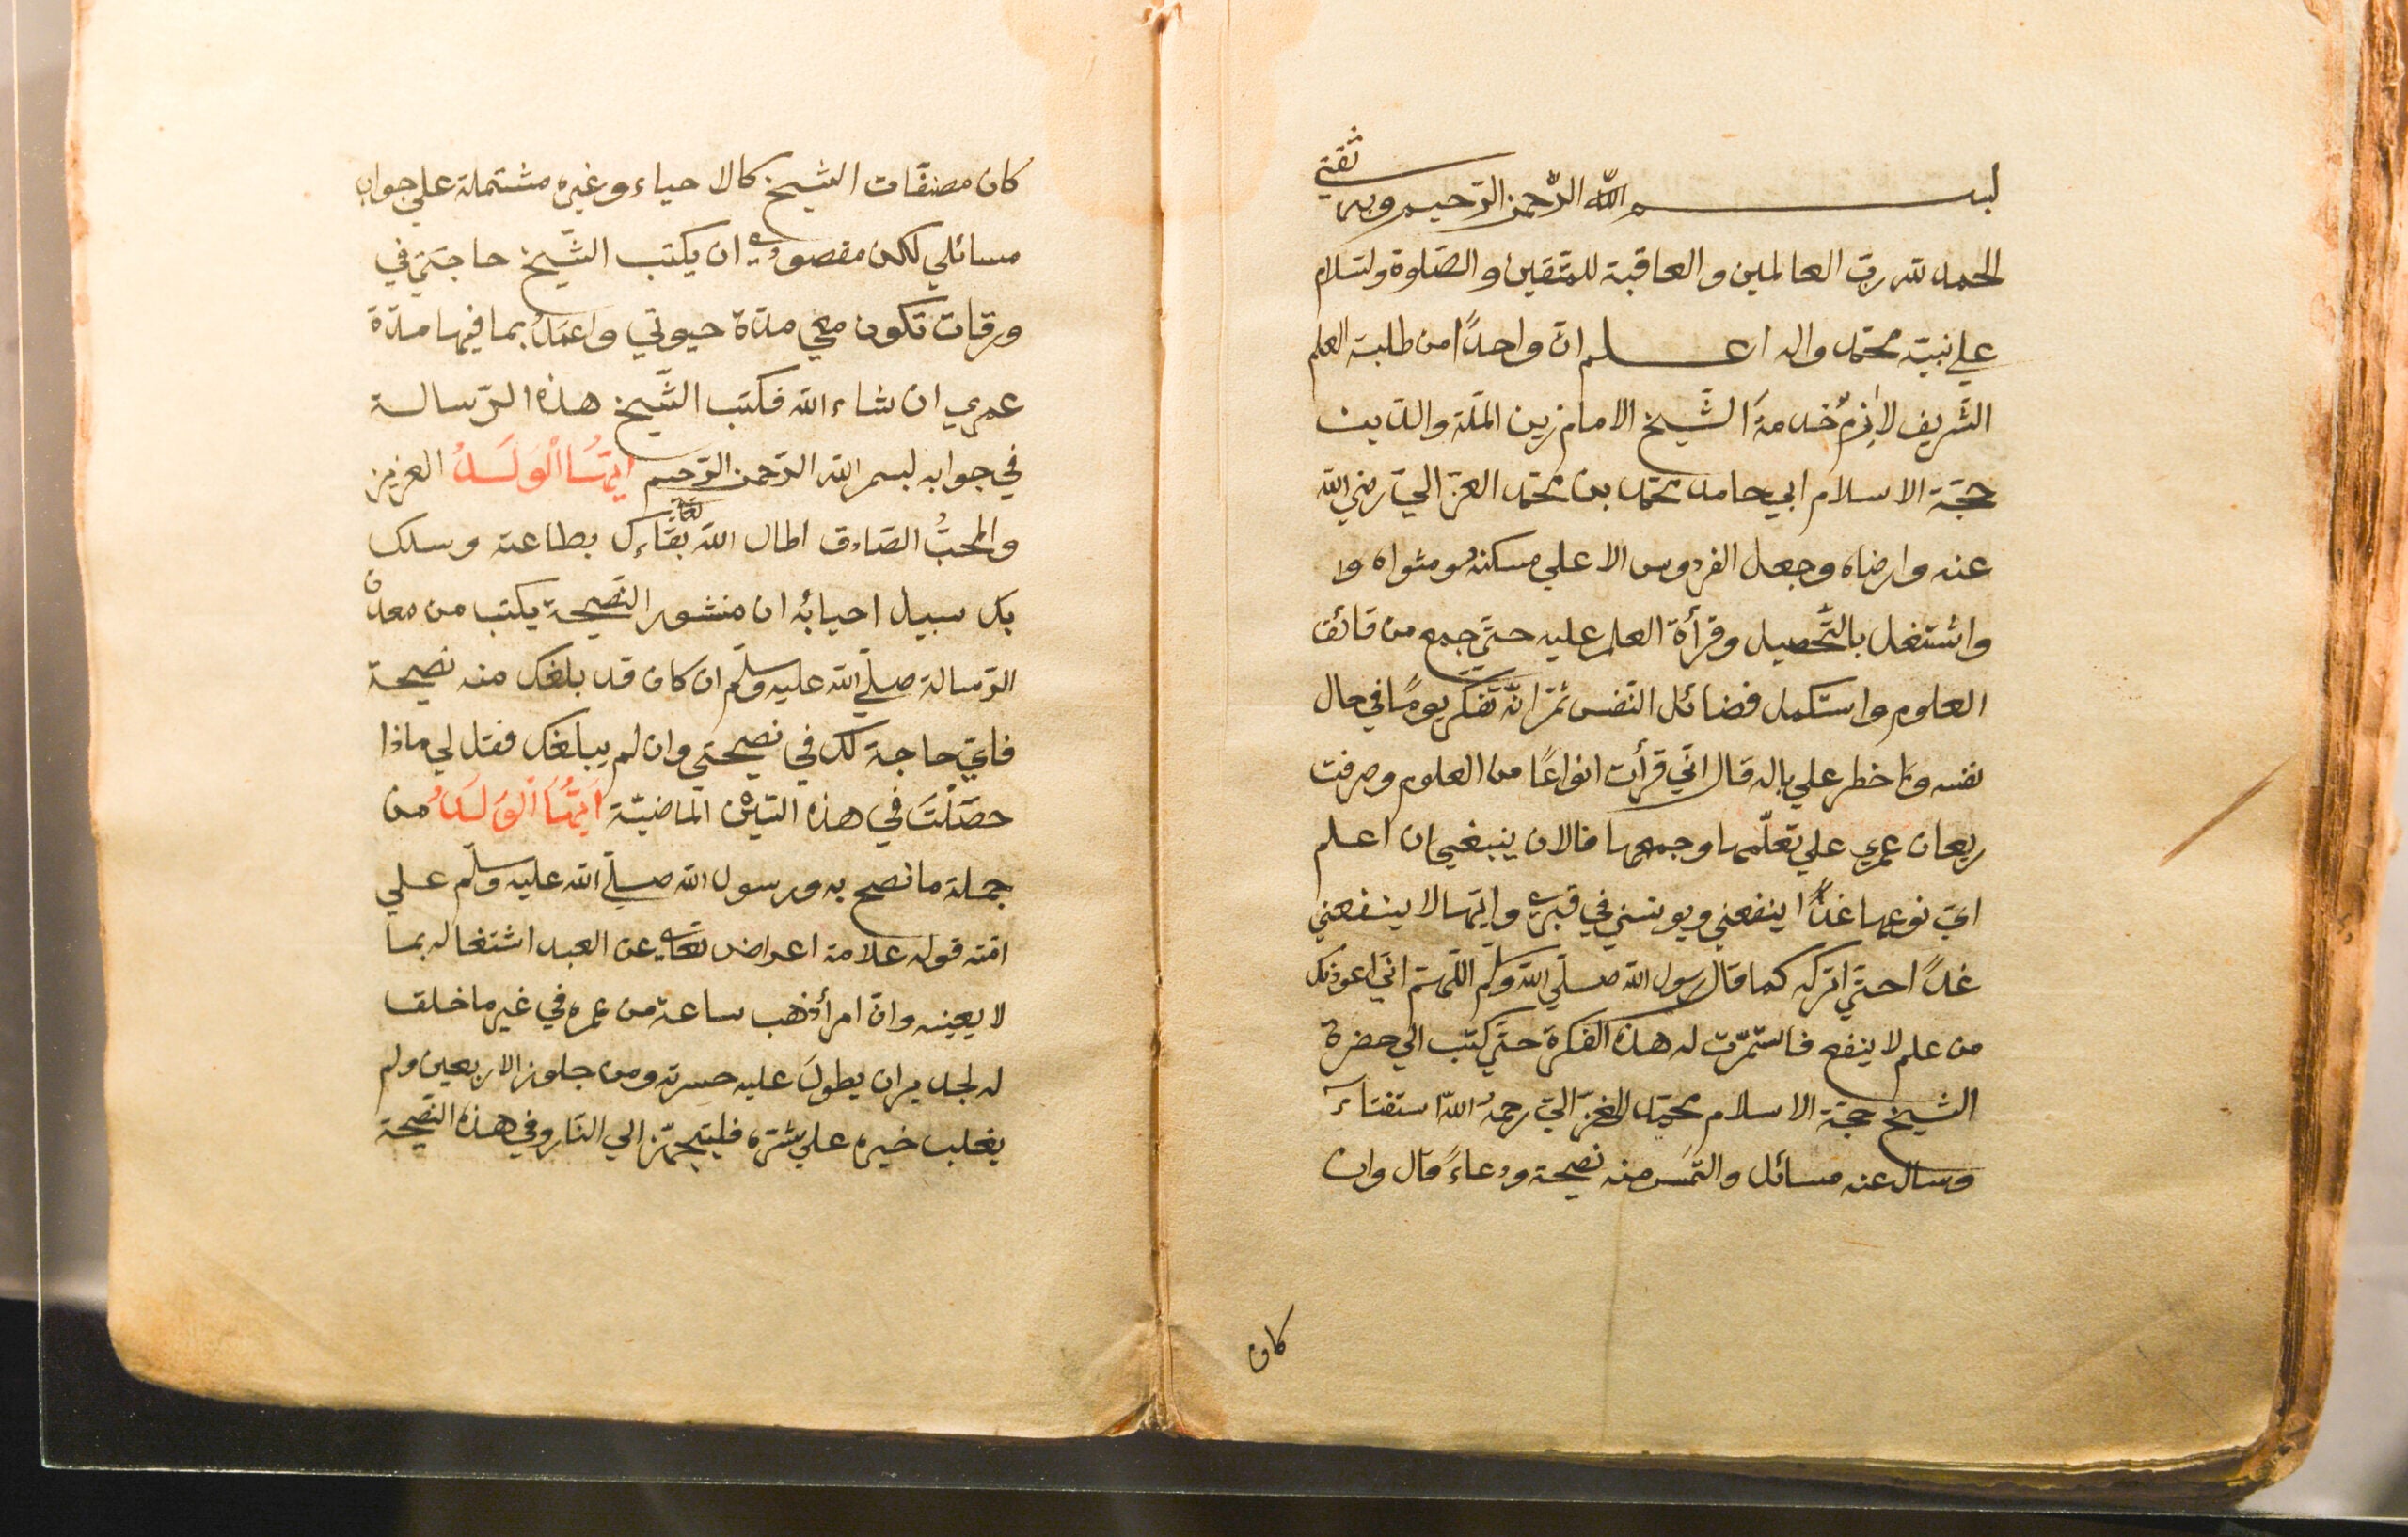 بسم الله الرّحمن الرّحيم وبه ثقتي
الحمد لله ربّ العالمين والعاقبة للمتّقين والصّلوة والسّلام
علي نبيّه محمّد واله اعلم انّ واحدًا من طلبة العلم
الشّريف لازم خدمة الشّيخ الامام زين الملّة والدّين
حجّة الاسلام ابي حامد محمّد بن محمّد الغزّاليّ رضي الله
عنه وارضاه وجعل الفردوس الاعلي مسكنه ومثواه وا
واشتغل بالتّحصيل وقرأة العلم عليه حتّي جمع من قائق
العلوم واستكمل فضائل النّفس ثمّ انّه تفكّر يومًا في حال
نفسه وخطر علي باله قال انّي قرأت انواعًا من العلوم وصرفت
ريعان عمري علي تعلّمها وجمعها فالان ينبغي ان اعلم
ايّ نوعها غدًا ينفعني ويونسني في قبري وايّها لا ينفعني
غدًا حتّي اتركه كما قال رسول الله صلّي الله وسلّم اللّهمّ انّي اعوذ بك
من علم لا ينفع فاستمرّت له هذه الفكرة حتّي كتب الي حضرة
الشيخ حجّة الاسلام محمّد الغزّاليّ رحمه الله استفتاءً
وسال عنه مسائل والتمس منه نصيحة ودعاءً قال وان
كان
كان مصنفّات الشيخ كالاحياء وغيره مشتملة علي جواب
مسائلي لكن مقصودي ان يكتب الشّيخ حاجتي في
ورقات تكون معي مدّة حيوتي واعمل بما فيها مدّة
عمري ان شاء الله فكتب الشّيخ هذه الرّسالة
في جوابه بسم الله الرّحمن الرّحيم ايّها الْوَلَدُ العزيز
والمحبُّ الصّادق اطال الله تعالي بقاءك بطاعته وسلك
بك سبيل احبائه ان منشور النّصيحة يكتب من معدن
الرّسالة صلّي الله عليه وسلّم ان كان قد بلغك منه نصيحة
فايّ حاجة لك في نصيحتي وان لم يبلغك فقل لي ماذا
حصّلْتَ في هذه السّنين الماضيّة ايّها الْوَلَدُ من
جملة ما نصح به ورسول الله صلّي الله عليه وسلّم علي
امّته قوله علامة اعراض تعالي عن العبد اشتغاله بما
لا يعينه وانّ امرأ ذهب ساعة من عمره في غير ما خلق
له لجدير ان يطولَ عليه حسرته ومن جاوز الاربعين ولم
يغلب خيره علي شرّه فليتجهّز الي النّار وفي هذه النّصيحة